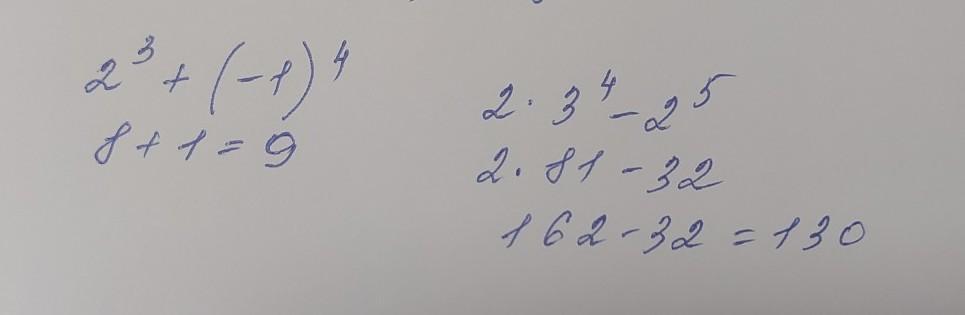 2³ + (-1)⁴
8 + 1 = 9
2 · 3⁴ - 2⁵
2 · 81 - 32
162 - 32 = 130